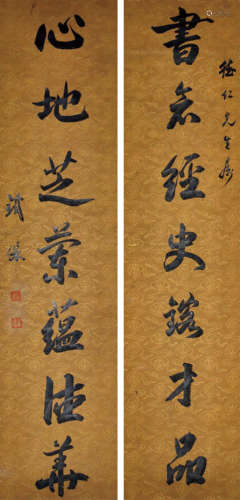 德仁先生屬
書經史鎔才品
心地芝蘭蘊德華